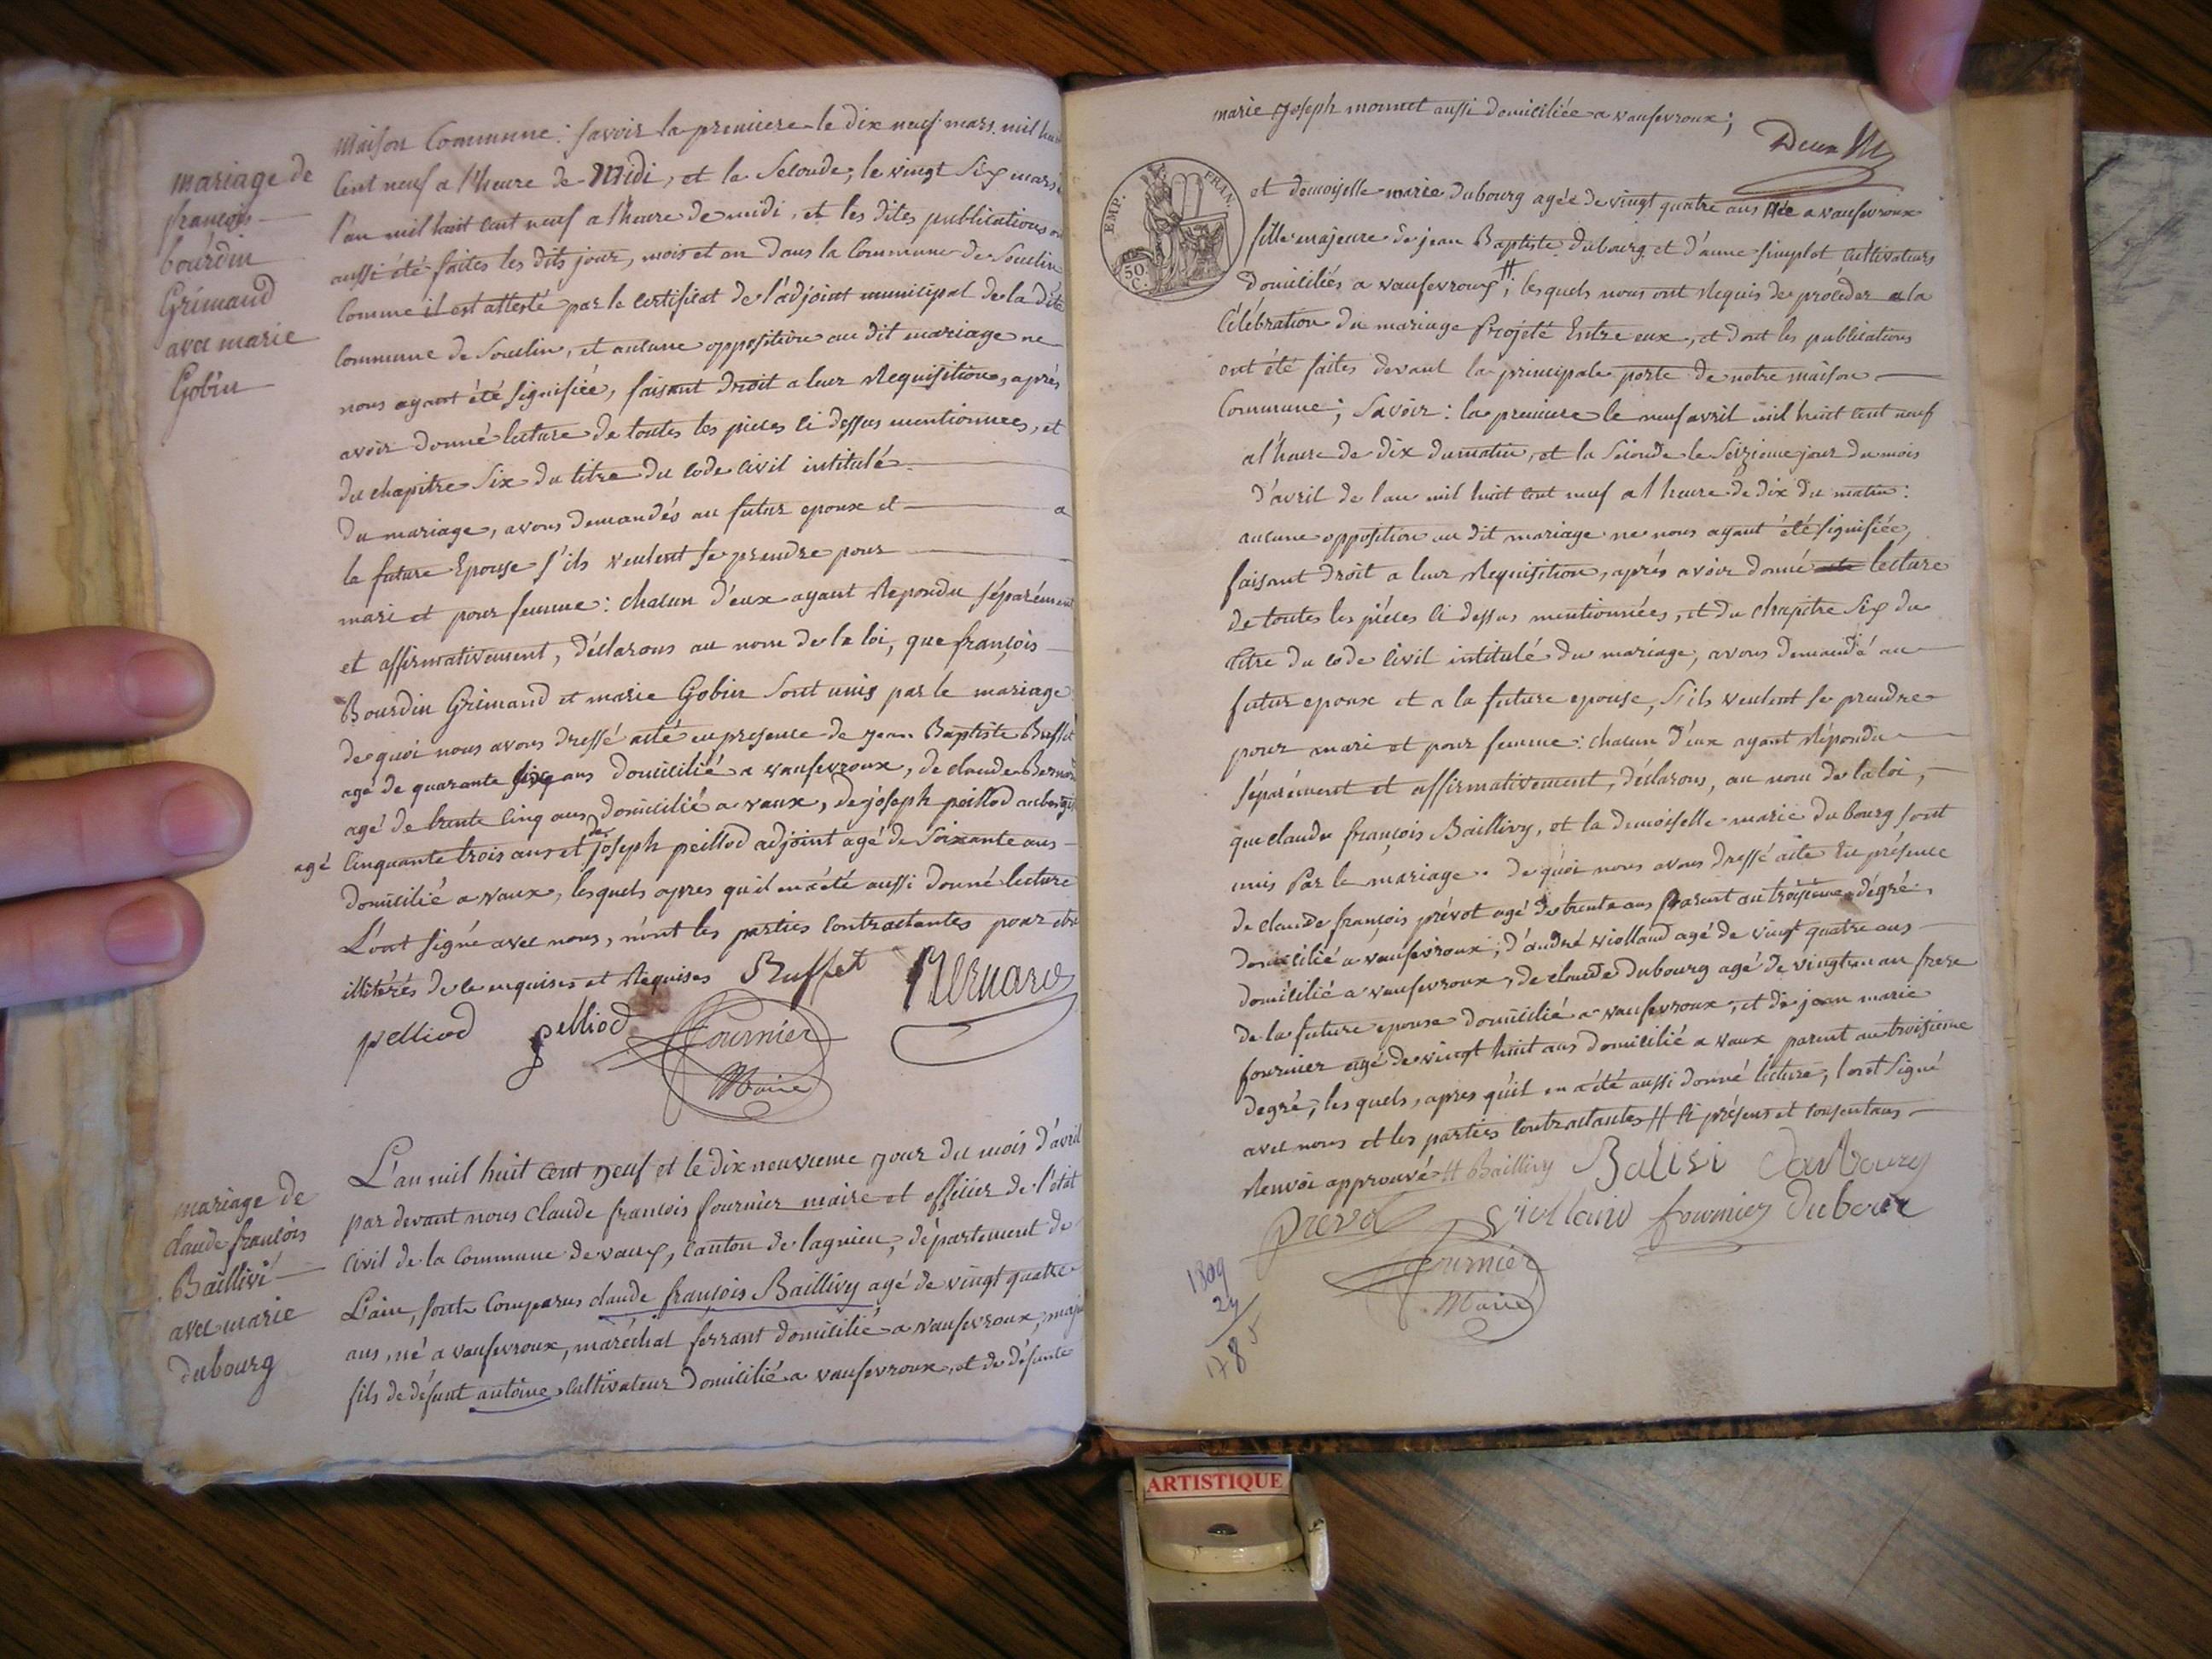 maison Commune: savoir la premiere le dix neuf mars mil huit
Cent neuf a l'heure de Midi, et la Seconde, le vingt Six mars
l'an mil huit cent neuf a l'heure de midi, et les dites publications
aussi été faites les dits jour, mois et an dans la Commune de Souclin
Comme il est attesté par le certificat de l'adjoint municipal de la dite
Commune de Souclin, et aucune opposition au dit mariage ne
nous ayant été signifiée, faisant droit a leur Requisition, après
avoir donné lecture de toutes les pieces ci dessus mentionnees, et
du chapitre Six du titre du code Civil intitulé
du mariage, avons demandés au futur epoux et a
la future Epouse s'ils veulent se prendre pour
mari et pour femme: chacun d'eux ayant Repondu séparément
et affirmativement, déclarons au nom de la loi, que françois
Bourdin Grimaud et marie Gobin sont unis par le mariage
de quoi nous avons dressé acte en presence de jean Baptiste Buffet
agé de quarante ans domicilié a vaufevroux, de claude Bernard
agé de trente cinq ans domicilié a vaux, de joseph peillod
agé Cinquante trois ans et de joseph peillod adjoint agé de Soixante ans
domicilié a vaux, lesquels apres qu'il en a été aussi donné lecture
L'ont signé avec nous, n'ont les parties Contractantes pour etre
illitérés de ce enquises et Requises Buffet Bernard
pelliod pelliod Fournier
Maire
mariage de
françois
bourdin
Grimaud
avec marie
Gobin
L'an mil huit Cent Neuf et le dix neuvieme jour du mois d'avril
par devant nous claude francois fournier maire et officier de l'état
Civil de la Commune de vaux, Canton de lagnieu, département de
L'ain, sont Comparus claude françois Baillivy agé de vingt quatre
ans, né a vaufevroux, maréchal ferrant domicilié a vaufevroux, majeur
fils de défunt antoine, cultivateur domicilié a vaufevroux, et de défunte
mariage de
claude françois
Baillivi
avec marie
dubourg
marie Joseph monnet aussi domiciliée a vaufevroux;
EMP. FRAN.
50 C.
et demoiselle marie dubourg agée de vingt quatre ans Née a vaufevroux
fille majeure de jean Baptiste dubourg et d'anne simplot Cultivateurs
domiciliés a vaufevroux #; lesquels nous ont Requis de procéder a la
Célébration du mariage Projeté Entre eux, et dont les publications
ont été faites devant la principale porte de notre maison
Commune; Savoir: la premiere le neuf avril mil huit cent neuf
a l'heure de dix du matin, et la Seconde le Seizieme jour du mois
d'avril de l'an mil huit cent neuf a l'heure de dix du matin:
aucune opposition au dit mariage ne nous ayant été signifiée,
faisant droit a leur Requisition, après avoir donné lecture
de toutes les pièces ci dessus mentionnées, et du chapitre Six du
titre du code Civil intitulé du mariage, avons demandé au
futur epoux et a la future epouse, s'ils veulent se prendre
pour mari et pour femme: chacun d'eux ayant Répondu
séparément et affirmativement, déclarons, au nom de la loi,
que claude françois Baillivy, et la demoiselle marie dubourg sont
unis Par le mariage. de quoi nous avons dressé acte En présence
de claude françois prévot agé de trente ans Parent au troisieme dégré,
domicilié a vaufevroux; d'andré violland agé de vingt quatre ans
domicilié a vaufevroux, de claude dubourg agé de vingt un an frere
de la future epouse domicilié a vaufevroux, et de jean marie
fournier agé de vingt huit ans domicilié a vaux parent au troisieme
degré, lesquels, apres qu'il en a été aussi donné lecture, l'ont signé
avec nous et les parties Contractantes # ci présens et consentans
Renvoi approuvé # Baillivy Balivi Dubourg
prevot violland fournier Dubour
Fournier
Maire
1809
24
1785
ARTISTIQUE